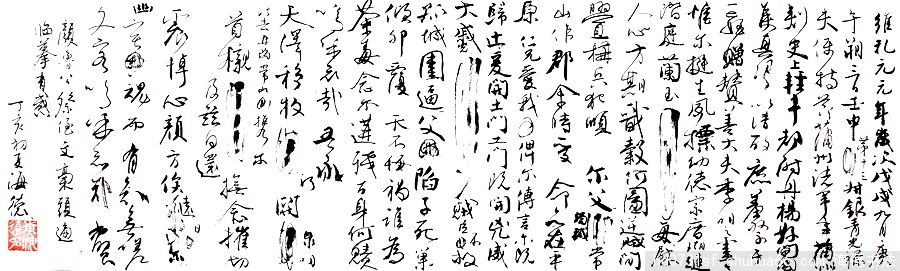 維乾元元年歲次戊戌九月庚
午朔三日壬申第十三叔銀青光祿
夫使持節蒲州諸軍事蒲州
刺史上輕車都尉丹楊縣開國
侯真卿以清酌庶羞祭于
亡姪贈贊善大夫季明之靈
惟爾挺生夙標幼德宗廟瑚璉
階庭蘭玉每慰
人心方期戩穀何圖逆賊間
釁稱兵犯順爾父竭誠常
山作郡余時受命亦在平
原仁兄愛我俾爾傳言爾既
歸止爰開土門土門既開兇威
大蹙賊臣不救
孤城圍逼父陷子死巢
傾卵覆天不悔禍誰為
荼毒念爾遘殘百身何贖
嗚乎哀哉吾承
天澤移牧河關泉明
比者再陷常山攜爾
首櫬及茲同還撫念摧切
震悼心顏方俟遠日
幽宅魂而有知無嗟
久客嗚呼哀哉尚饗
顏魯公祭姪文稾
臨摹有感
丁亥初夏海德